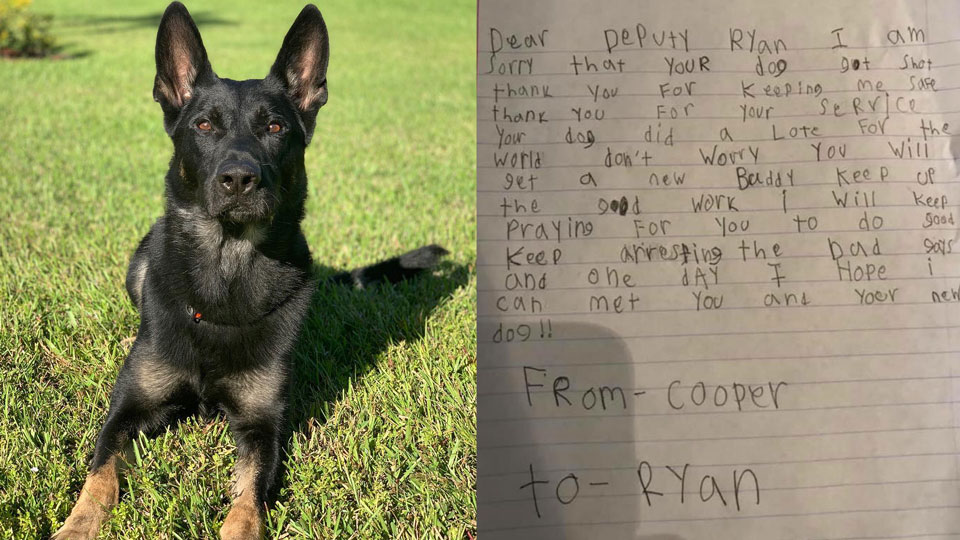 Dear DEPUTY RYAN I am
sorry that YOUR dog got shot
thank you FOR Keeping me safe
thank you FOR Your SeRvice
Your dog did a Lote For the
world don't worry You will
get a new Buddy Keep up
the good work i will Keep
praying For you to do good
Keep arresting the bad guys
and one dAY I Hope i
can met you and your new
dog!!
FRom- cooper
to- RYan